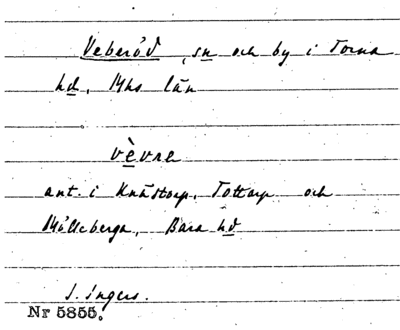 Veberöd, sn och by i Torna
hd, Mhs län
vèvre
ant. i Knästorp, Tottarp och
Mölleberga, Bara hd
I. Ingers.
Nr 5855.